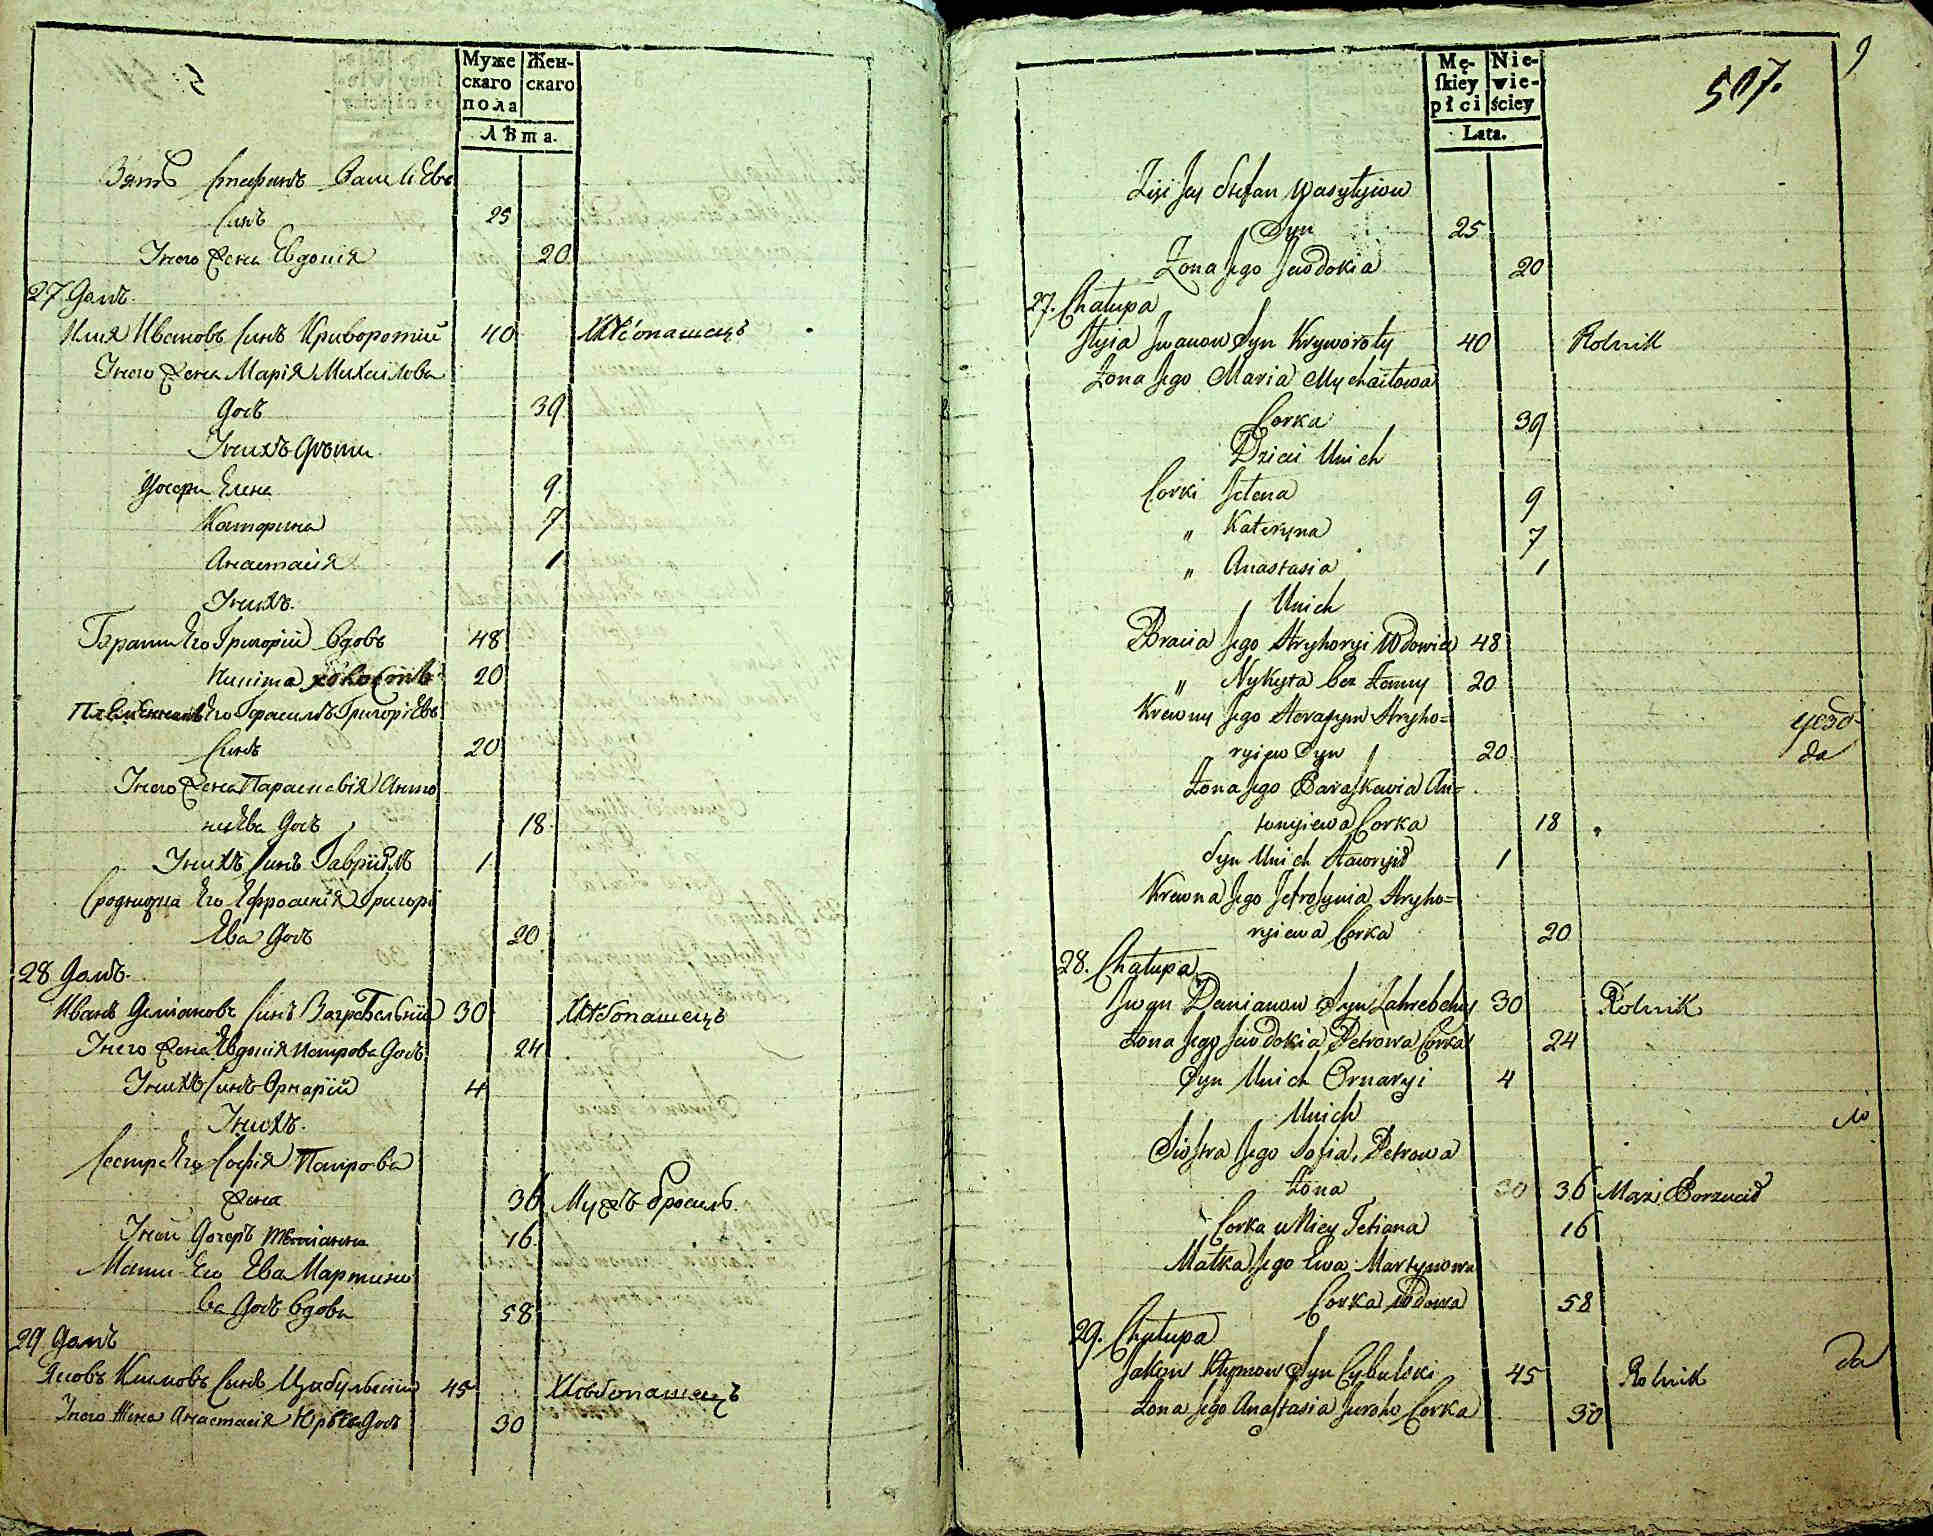 Муже скаго пола
Жен- скаго
Лѣта.
Зять Стефанъ Василіевъ
Синъ 25
Унего Жена Евдокія 20
27 Домъ.
Илия Ивановъ Синъ Криворотій 40 Хлѣбопашецъ
Унего Жена Марія Михаилова
Дочъ 39
Унихъ Дѣти
Дочери Елена 9
Катерина 7
Анастасія 1
Унихъ.
Брати Его Григорій вдовъ 48
Никита холостъ 20
Племенникъ Его Герасимъ Григоріевъ
Синъ 20
Унего Жена Параскевія Анто
ніева Дочъ 18
Унихъ Синъ Гавріилъ 1
Сродница Его Ефросинія Григорі
Ева Дочъ 20
28 Домъ.
Иванъ Деміановъ Синъ Загребельній 30 Хлѣбопашецъ
Унего Жена Евдокія Петрова Дочъ 24
Унихъ Синъ Орнарій 4
Унихъ.
Сестра Его Софія Петрова
Жена 36 Мужъ бросилъ.
Уней Дочеръ Тетіанна 16
Мати Его Ева Мартино
ва Дочъ вдова 58
29 Домъ
Яковъ Климовъ Синъ Цибульскій 45 Хлѣбопашецъ
Унего Жена Анастасія Юрьева Дочъ 30
507.
9
Mę- skiey płci
Nie- wie- ściey
Lata.
Zięć Jey Stefan Wasylyjow
Syn 25
Zona Jego Jewdokia 20
27. Chałupa
Ilyia Iwanow Syn Kryworoty 40 Rolnik
Zona Jego Maria Mychaiłowa
Corka 39
Dzieci Unich
Corki Jelena 9
„ Kateryna 7
„ Anastasia 1
Unich
Bracia Jego Hryhoryi Wdowiec 48
„ Nykyta bez Żenny 20
Krewny Jego Herasym Hryho=
ryiew Syn 20
Zona Jego Paraskewia An=
tonyiewa Corka 18
Syn Unich Hawryił 1
Krewna Jego Jefrosynia Hryho=
ryiewa Corka 20
28. Chałupa
Iwan Demianow Syn Zahrebelny 30 Rolnik
Zona Jego Jewdokia Petrowa Corka 24
Syn Unich Ornaryi 4
Unich
Siostra Jego Sofia, Petrowa
Zona 36 Mąż Porzucił
Corka u Niey Tetiana 16
Matka Jego Ewa Martynowa
Corka Wdowa 58
29. Chałupa
Jakow Klymow Syn Cybulski 45 Rolnik
Zona Jego Anastasia Juroho Corka 30
уезд-
да
да